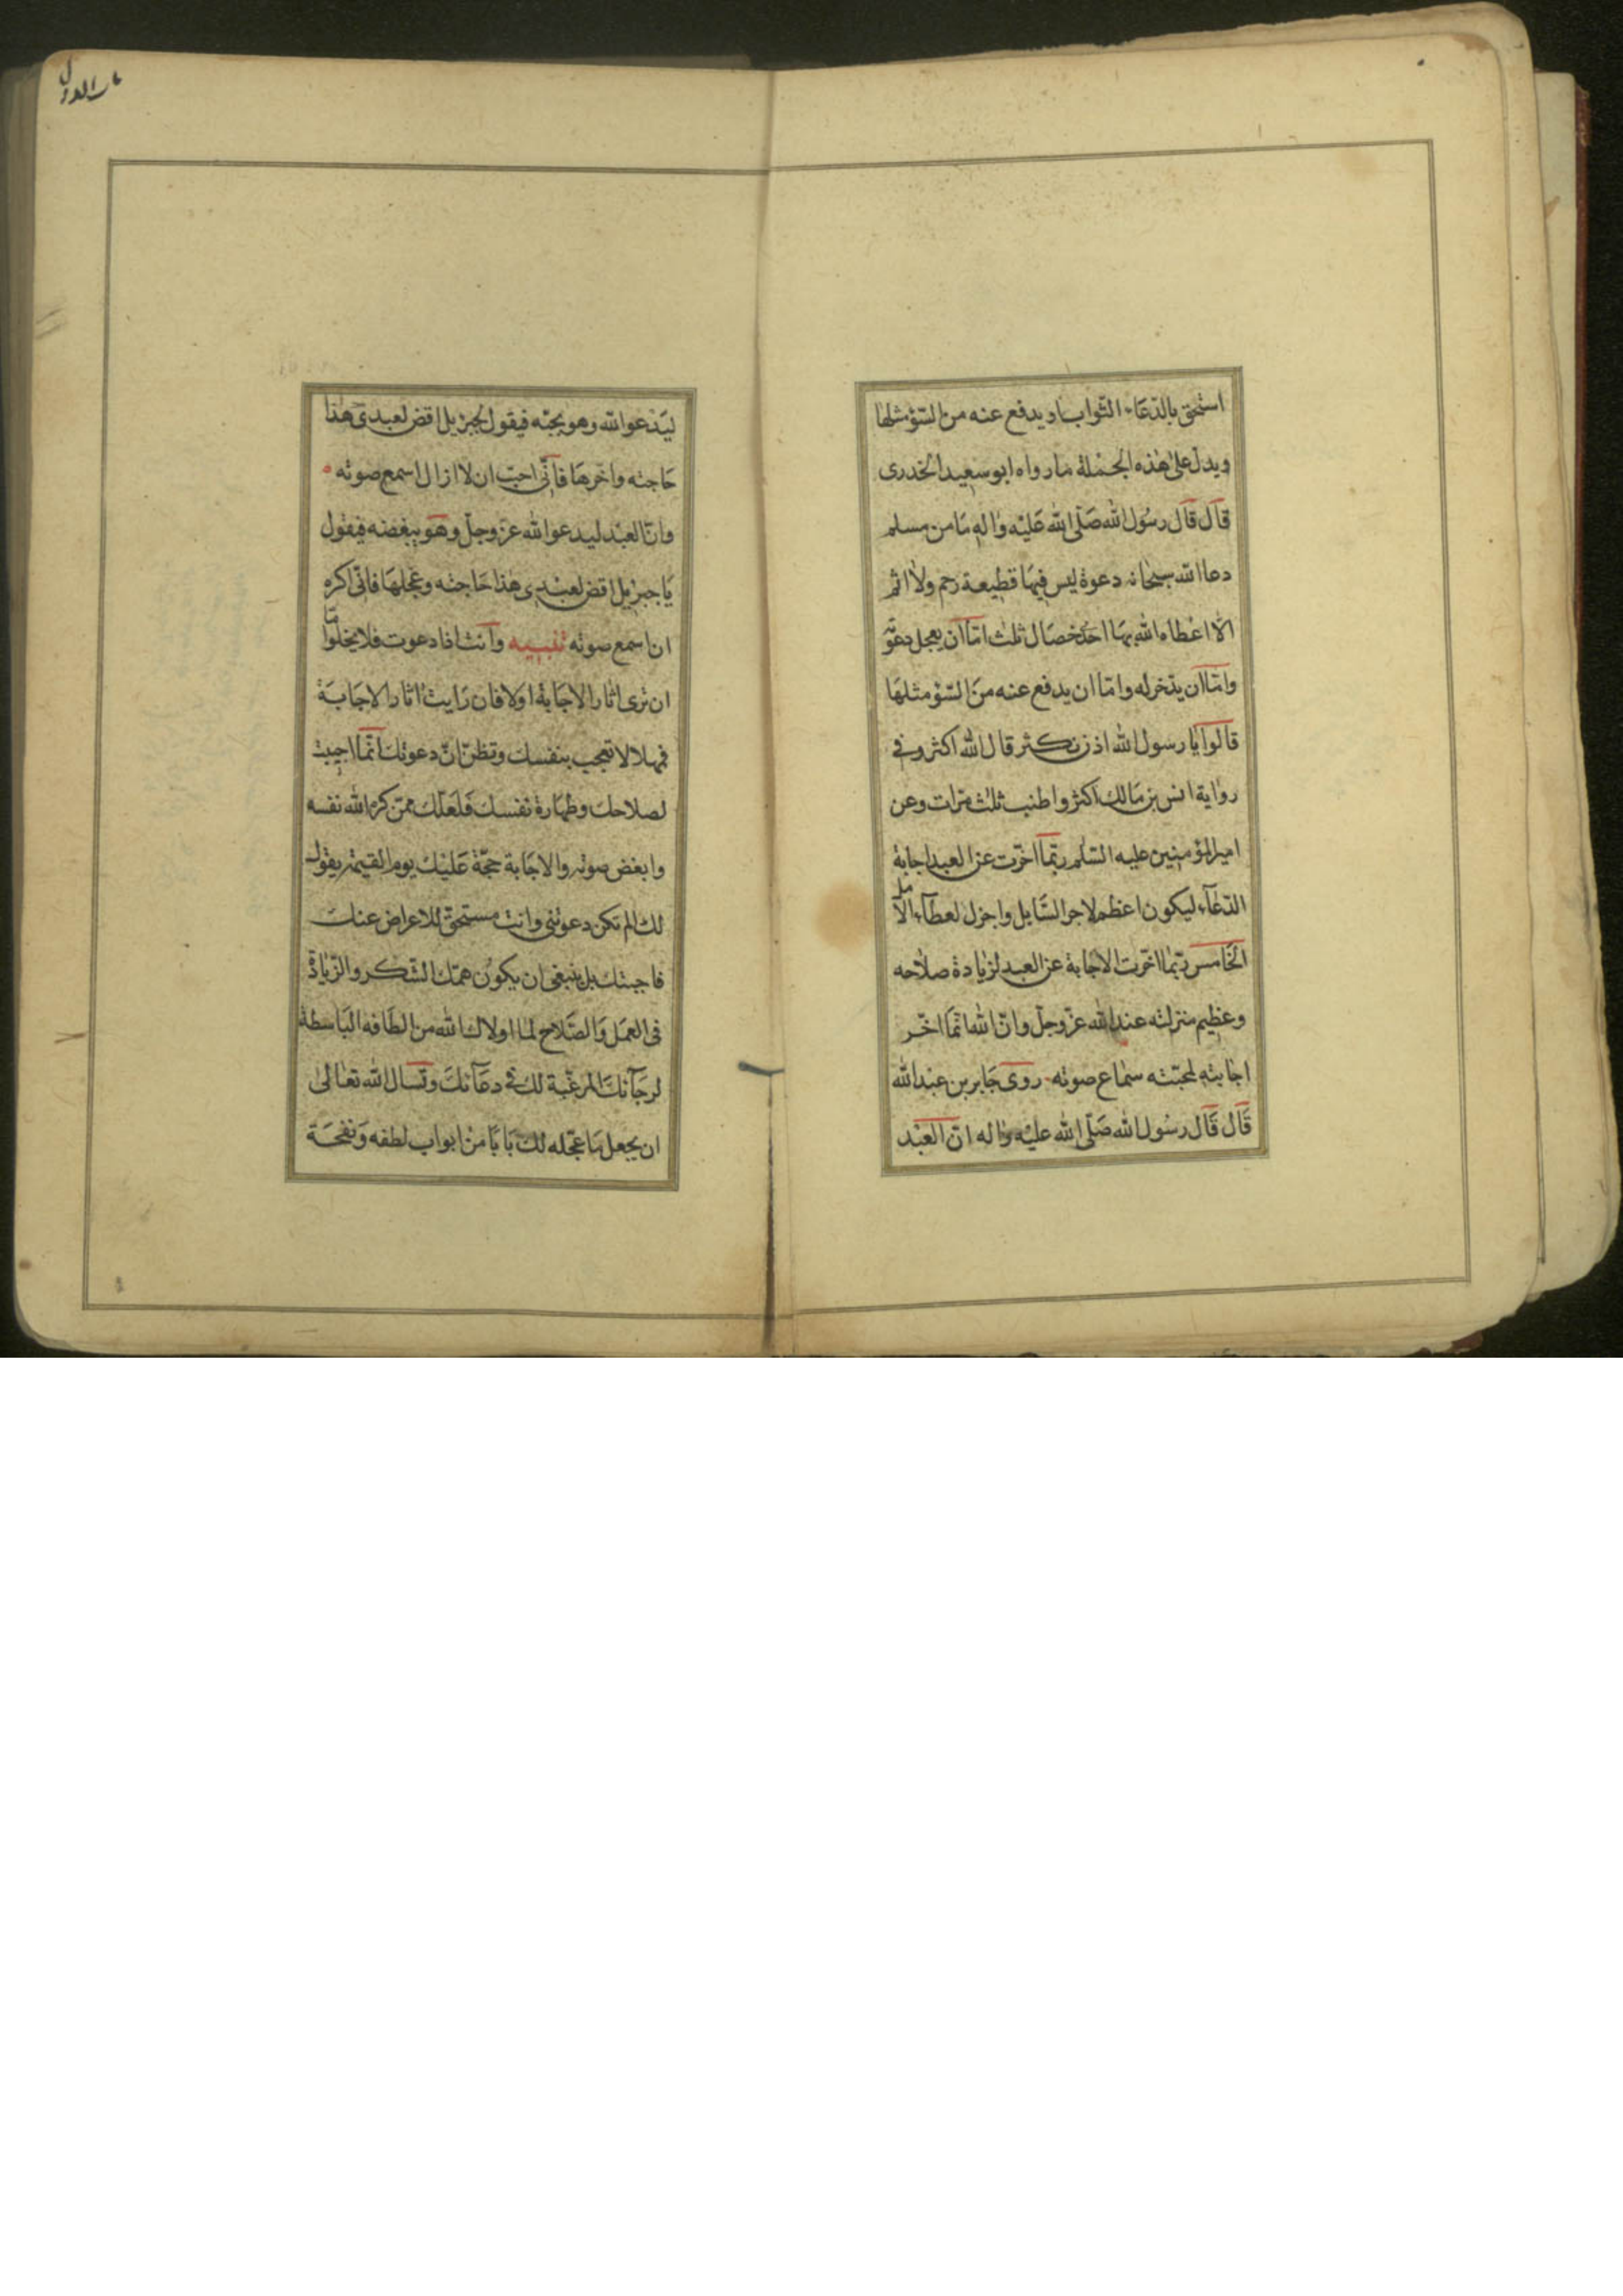 استحق بالدّعاء الثّواب او يدفع عنه من السّوء مثلها
ويدلّ على هذه الجملة ما رواه ابو سعيد الخدرى
قال قال رسول الله صَلّى الله عَليْه واله مَا من مسلم
دعا الله سبحانه دعوة ليس فيها قطيعة رحم ولا اثم
الّا اعطاه الله بهَا احدَ خصَال ثلث امّا ان يعجل دعوته
وامّا ان يدّخر له وامّا ان يدفع عنه منَ السّوء مثلهَا
قالوا يا رسول الله اذن نكثر قال الله اكثر وفى
رواية انس بن مَالك اكثر واطنب ثلث مرّات وعن
امير المؤمنين عليه السّلم ربّما اخّرت عن العبد اجابة
الدّعآء ليكون اعظم لاجر السّايل واجزل لعطآء الآمل
الخَامس ربّما اخّرت الاجابة عن العبد لزيادة صلاحه
وعظيم منزلته عند الله عزّ وجلّ وانّ الله انّما اخّر
اجابته لمحبّته سماع صوته روى جَابر بن عبد الله
قَال قَال رسُول الله صَلّى الله عليْه واله انّ العبْد
ليَدعو الله وهو يحبّه فيقول لجبرئيل اقض لعبدى هذا
حَاجته واخّرهَا فانّى احبّ ان لا ازال اسمع صوته
وانّ العبْد ليدعو الله عزّ وجلّ وهو يبغضه فيقول
يَا جبرئيل اقض لعبْدى هذا حَاجته وعجّلهَا فانّى اكره
ان اسمع صوته تنبيه وانت اذا دعوت فلا يخلوا امّا
ان ترى اثار الاجَابة اولا فان رَايت اثار الاجَابَة
فمهلا لا تعجب بنفسك وتظنّ انّ دعوتك انّما اجيبت
لصلاحك وطهَارة نفسك فَلعَلّك ممّن كره الله نفسه
وابغض صوته والاجَابة حجّة عَليْك يوم القيمة يقول
لك الم تكن دعوتنى وانت مستحق للاعراض عنك
فاجبتك بل ينبغى ان يكون همّك الشّكر والزّيادة
فى العمَل وَالصّلاح لما اولاك الله من الطَافه البَاسطة
لرجَآئكَ المرغّبة لك فى دعَآئكَ وتَسال الله تعَالى
ان يجعل مَا عجّله لك بَابًا من ابواب لطفه وَنفحَة